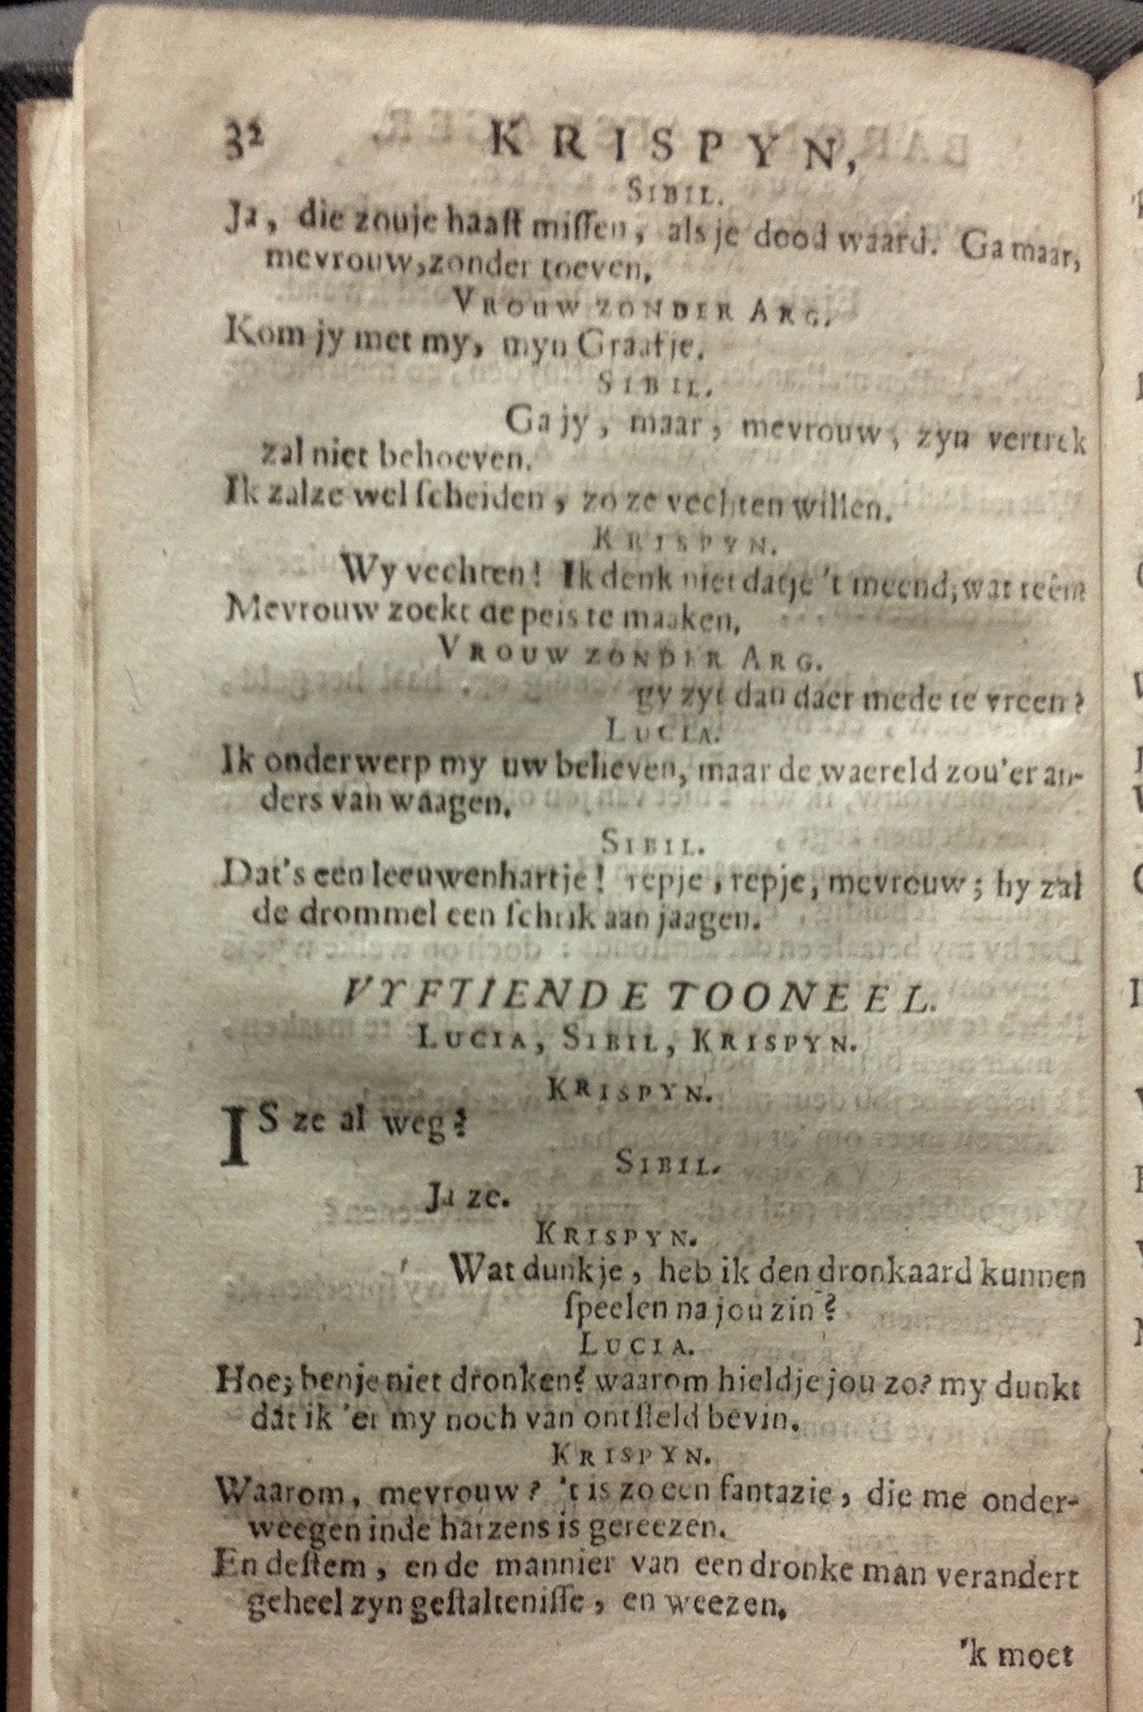 32 KRISPYN,
SIBIL.
Ja, die zouje haaſt miſſen, als je dood waard. Ga maar,
mevrouw, zonder toeven.
VROUW ZONDER ARG.
Kom jy met my, myn Graatje.
SIBIL.
Ga jy, maar, mevrouw, zyn vertrek
zal niet behoeven.
Ik zalze wel ſcheiden, zo ze vechten willen.
KRISPYN.
Wy vechten! Ik denk niet datje 't meend; wat reên
Mevrouw zoekt de peis te maaken.
VROUW ZONDER ARG.
gy zyt dan daer mede te vreen?
LUCIA.
Ik onderwerp my uw believen, maar de waereld zou'er an-
ders van waagen.
SIBIL.
Dat's een leeuwenhartje! repje, repje, mevrouw; hy zal
de drommel een ſchrik aan jaagen.
VYFTIENDE TOONEEL.
LUCIA, SIBIL, KRISPYN.
KRISPYN.
IS ze al weg?
SIBIL.
Ja ze.
KRISPYN.
Wat dunkje, heb ik den dronkaard kunnen
ſpeelen na jou zin?
LUCIA.
Hoe; benje niet dronken? waarom hieldje jou zo? my dunkt
dat ik 'er my noch van ontſteld bevin.
KRISPYN.
Waarom, mevrouw? 't is zo een fantazie, die me onder-
weegen inde harzens is gereezen.
En de ſtem, en de mannier van een dronke man verandert
geheel zyn geſtalteniſſe, en weezen.
'k moet